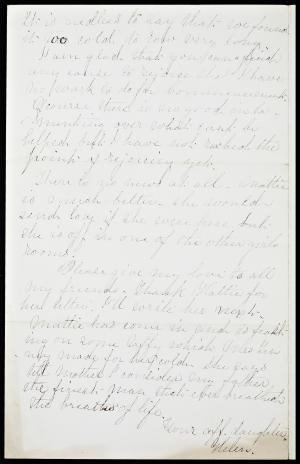 It is needless to say that we found
it too cold to row very long.
I am glad that you can find
any cause to rejoice that I have
no work to do for commencement.
Of course there is no good in la-
menting over what can't be
helped but I have not reached the
point of rejoicing yet.
There is no news at all - Mattie
is much better. She would
send love if she were here but
she is off in one of the other girls
rooms.
Please give my love to all
my friends. Thank Hattie for
her letter. I'll write her next.
Mattie has come in and is
on some taffy which Miss
made for her cold. She says
tell Mother I consider my father
the finest man that ever breathed
the breath of life.
Your aff. daughter
Helen.